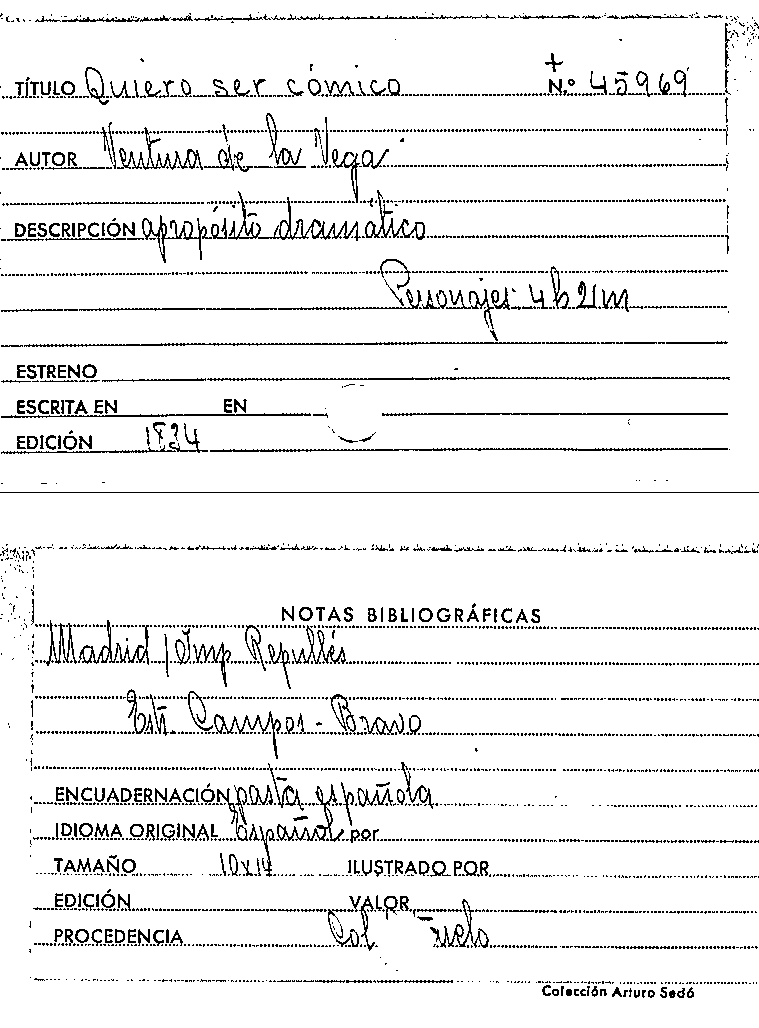 TÍTULO Quiero ser cómico + N.º 45969
AUTOR Ventura de la Vega
DESCRIPCIÓN apropósito dramático
Personajes 4h 2m
ESTRENO
ESCRITA EN EN
EDICIÓN 1834
NOTAS BIBLIOGRÁFICAS
Madrid / Imp Repullés
Estr. Campos - Bravo
ENCUADERNACIÓN pasta española
IDIOMA ORIGINAL Español por
TAMAÑO 10x14 ILUSTRADO POR
EDICIÓN VALOR
PROCEDENCIA Col
Colección Arturo Sedó